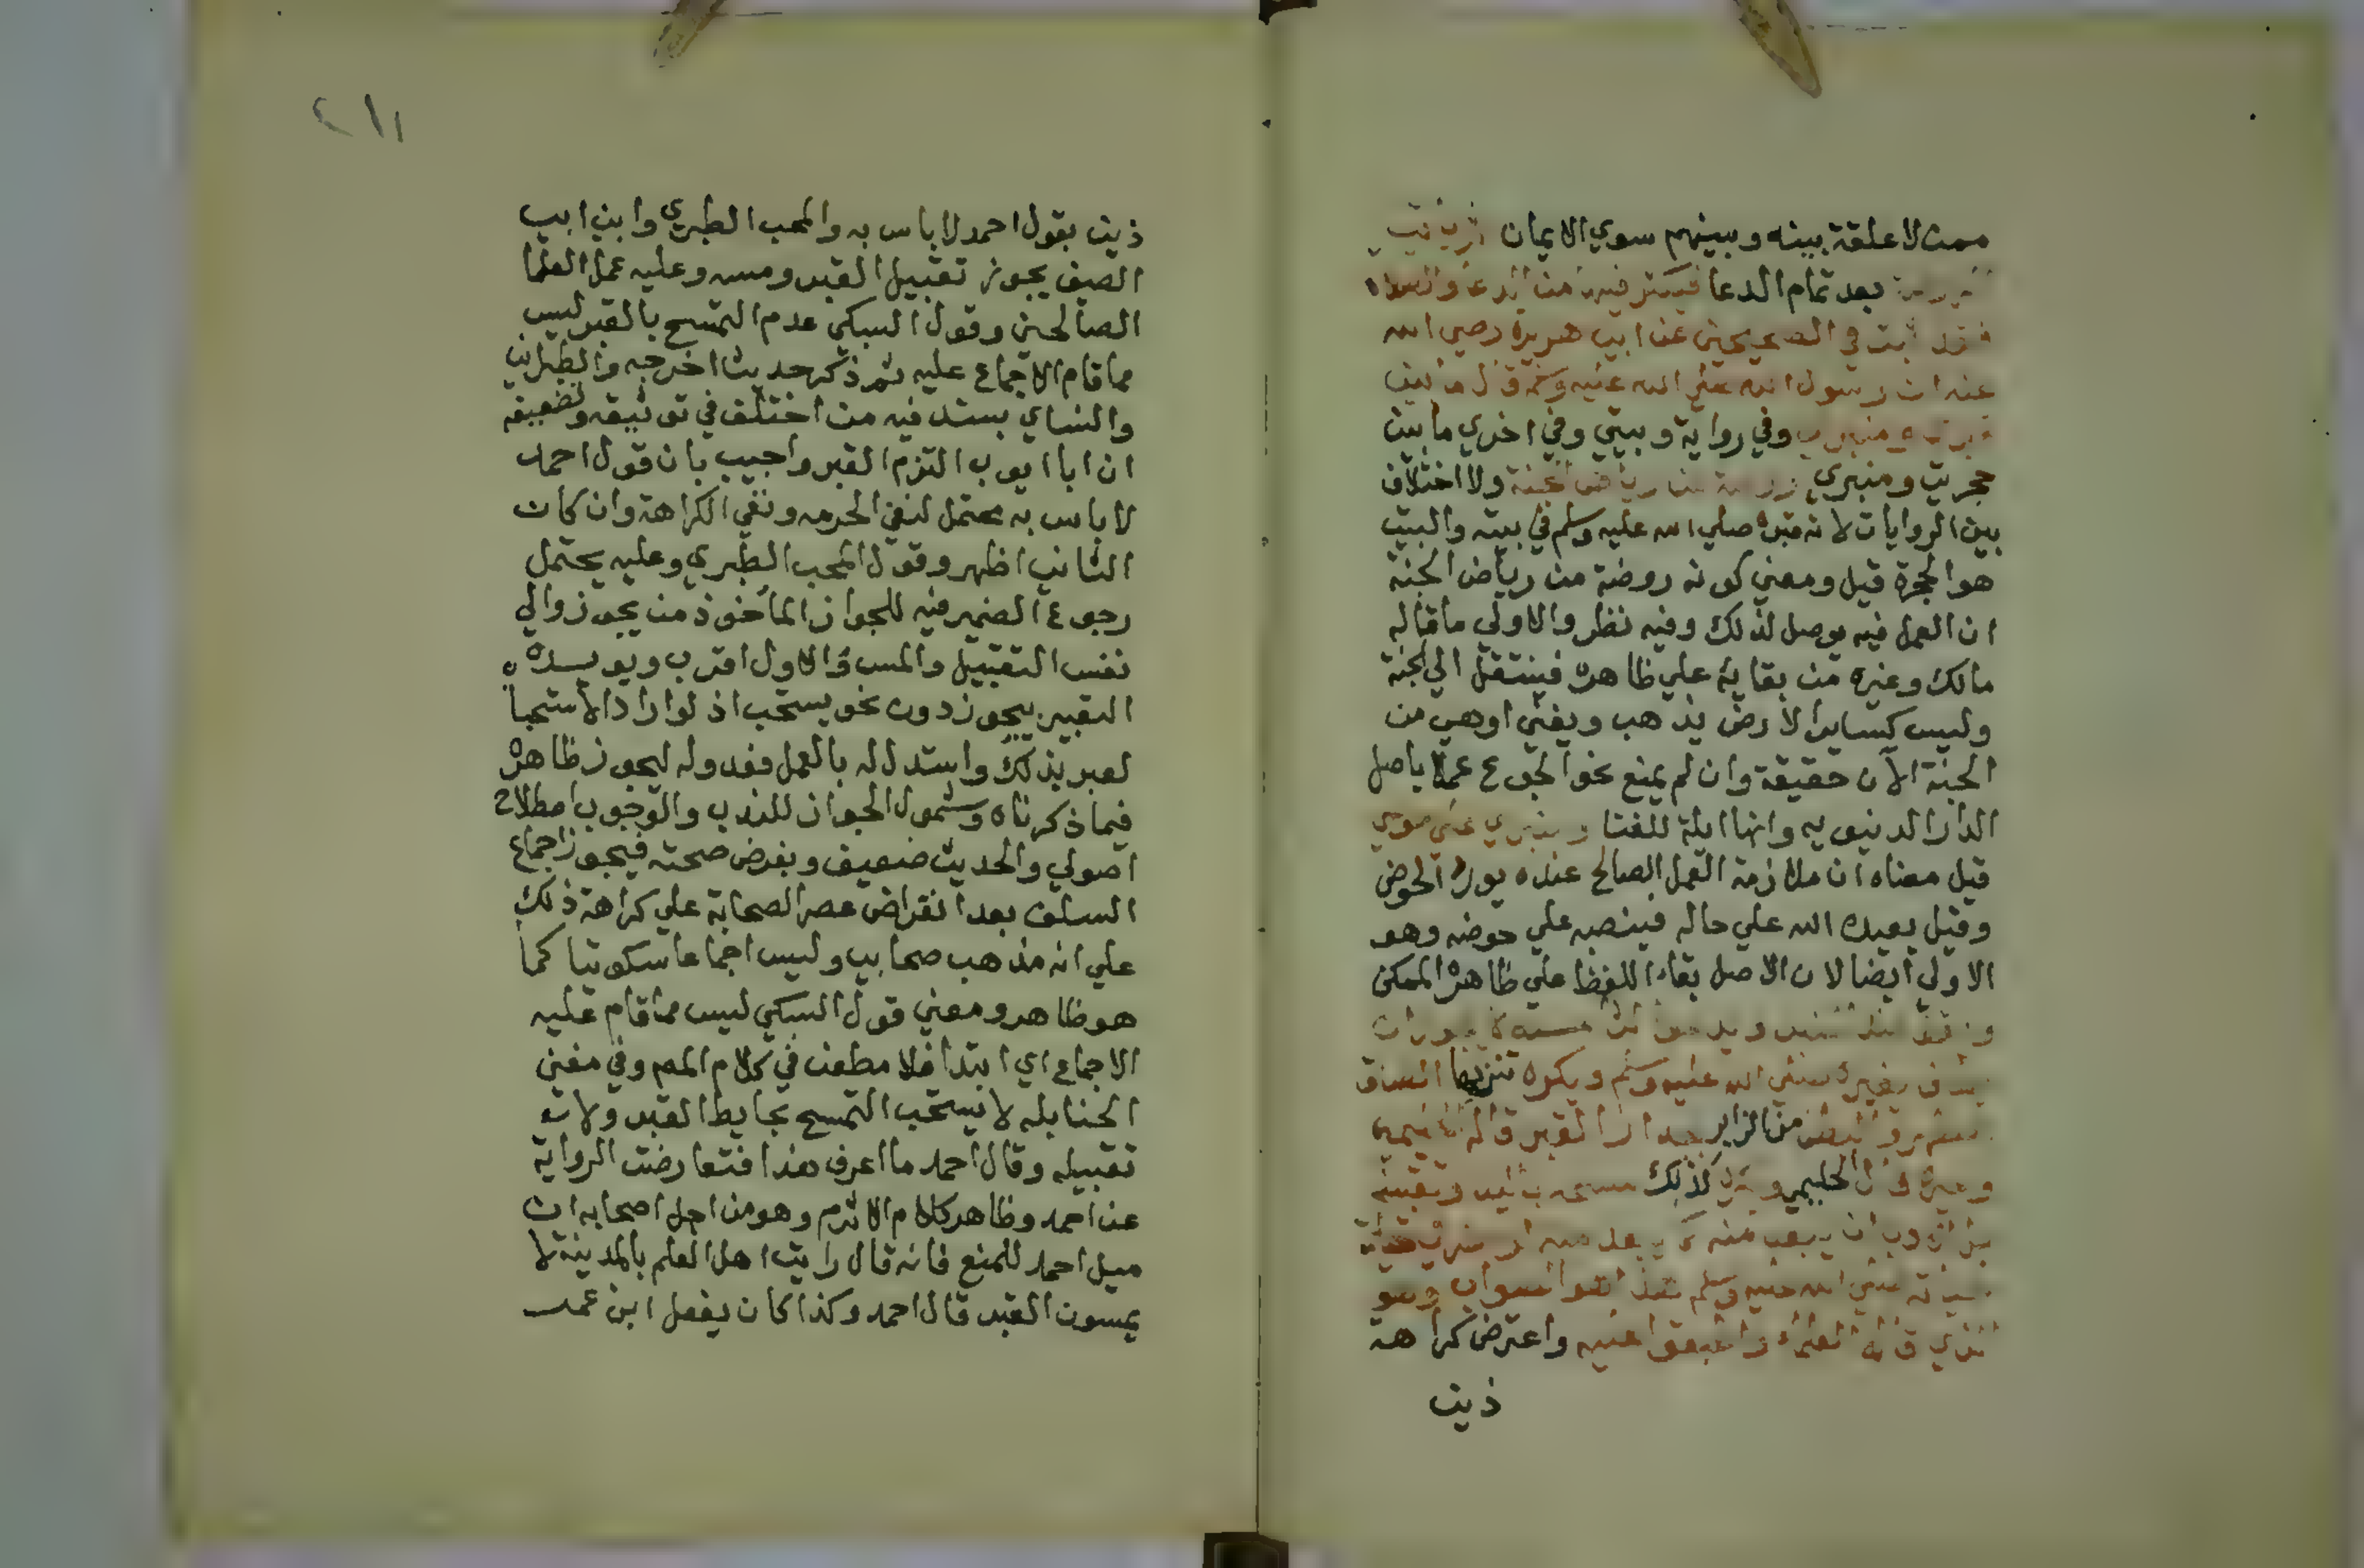 ممن لا علقة بينه وبينهم سوي الايمان ثم ياتي
الروضة بعد تمام الدعا فيكثر فيها من الدعا والصلاة
فقد ثبت في الصحيحين عن ابي هريرة رضي الله
عنه ان رسول الله صلي الله عليه وسلم قال ما بين
قبري ومنبري وفي رواية وبيتي وفي اخري ما بين
حجرتي ومنبري روضة من رياض الجنة ولا اختلاف
بين الروايات لان قبره صلي الله عليه وسلم في بيته والبيت
هو الحجرة قيل ومعني كونه روضة من رياض الجنة
ان العمل فيه يوصل لذلك وفيه نظر والاولي ما قاله
مالك وغيره من بقايه علي ظاهره فينتقل الي الجنة
وليس كساير الارض يذهب ويفني او هي من
الجنة الآن حقيقة وان لم يمنع نحو الجوع عملا باصل
الدار الدنيويه وانها ايلة للفنا ومنبري علي حوضي
قيل معناه ان ملازمة العمل الصالح عنده يورد الحوض
وقيل يعيده الله علي حاله فينصبه علي حوضه وهو
الاولي ايضا لان الاصل بقاء اللفظ علي ظاهره الممكن
ويقف عند المنبر ويدعو لا يجوز ان
يطاف بقبره صلي الله عليه وسلم ويكره تنزيها الصاق
الظهر والبطن من الزاير بجدار القبر قاله الحليمي
وغيره قال الحليمي وكذلك مسحه باليد وتقبيله
بل الادب ان يبعد منه كما يبعد منه لو حضر في حياته
صلي الله عليه وسلم هذا هو الصواب وهو
الذي قاله العلماء واطبقوا عليه واعترض كراهة
ذين
٢١١
ذين بقول احمد لا باس به والمحب الطبري وابن ابي
الصيف يجوز تقبيل القبر ومسه وعليه عمل العلما
الصالحين وقول السبكي عدم التمسح بالقبر ليس
مما قام الاجماع عليه ثم ذكر حديثا اخرجه والطبراني
والنساي بسند فيه من اختلف في توثيقه وتضعيفه
ان ابا ايوب التزم القبر واجيب بان قول احمد
لا باس به محتمل لنفي الحرمه ونفي الكراهة وان كان
الثاني اظهر وقول المحب الطبري وعليه يحتمل
رجوع الضمير فيه للجواز الماخوذ من يجوز والي
نفس التقبيل والمس والاول اقرب ويويده
التعبير بيجوز دون نحو يستحب اذ لو اراد الاستحبا
لعبر بذلك واستدلاله بالعمل فعدوله ليجوز ظاهر
فيما ذكرناه وشمول الجواز للندب والوجوب اصطلاح
اصولي والحديث ضعيف وبفرض صحته فيجوز اجماع
السلف بعد انقراض عصر الصحابة علي كراهة ذلك
علي انه مذهب صحابي وليس اجماعا سكوتيا كما
هو ظاهر ومعني قول السبكي ليس مما قام عليه
الاجماع اي ابتدا فلا مطعن في كلام المص وفي مغني
الحنابله لا يستحب التمسح بحايط القبر ولا
تقبيله وقال احمد ما اعرف هذا فتعارضت الرواية
عن احمد وظاهر كلام الاثرم وهو من اجل اصحابه ان
ميل احمد للمنع فانه قال رايت اهل العلم بالمدينة لا
يمسون القبر قال احمد وكذا كان يفعل ابن عمر